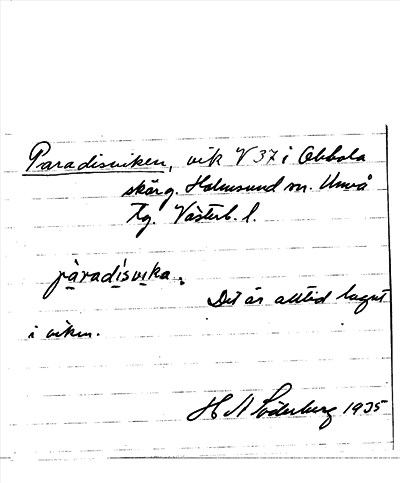 Paradisviken, vik V 37 i Obbola
skärg. Holmsund sn. Umeå
tg. Västerb. l.
pàradísvika.
Det är alltid lugnt
i viken.
H A Söderberg 1935